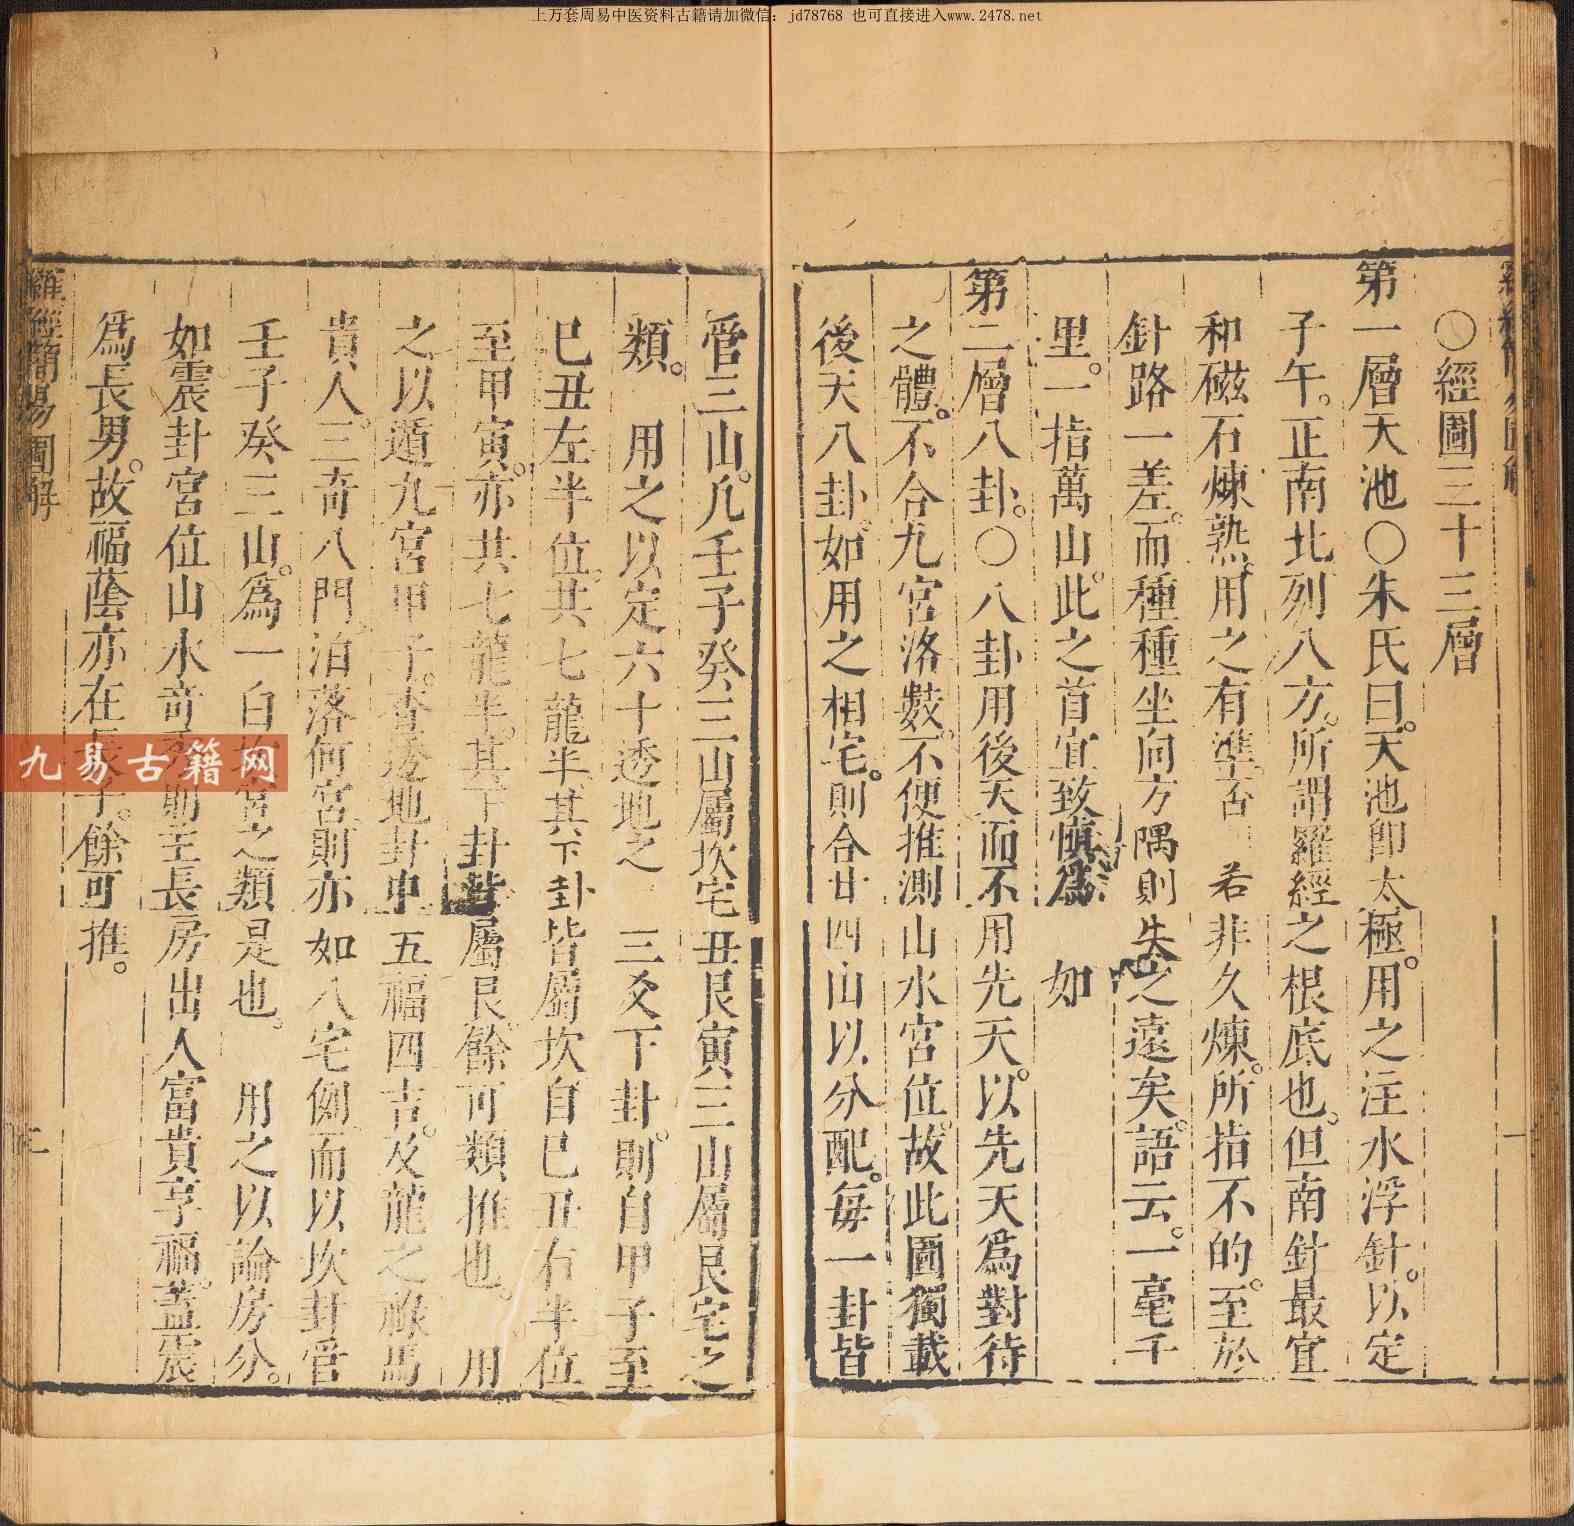 上万套周易中医资料古籍请加微信：jd78768 也可直接进入www.2478.net
〇經圖三十三層
第一層天池〇朱氏曰。天池卽太極。用之注水浮針。以定
子午。正南北列八方。所謂羅經之根底也。但南針最宜
和磁石煉熟。用之有準。否 若非久煉。所指不的。至於
針路一差。而種種坐向方隅則失之遠矣。語云。一毫千
里。一指萬山。此之首宜致慎為 如
第二層八卦。〇八卦用後天而不用先天。以先天爲對待
之體。不合九宮洛數。不便推測山水宮位。故此圖獨載
後天八卦。如用之相宅。則合廿四山以分配。每一卦皆
管三山。凡壬子癸三山屬坎宅丑艮寅三山屬艮宅之
類。 用之以定六十透地之 三爻下卦。則自甲子至
巳丑左半位。共七龍半。其下卦皆屬坎自巳丑右半位
至甲寅。亦共七龍半。其下卦皆屬艮餘可類推也。 用
之以遁九宮甲子。查透地卦中五福四吉。及龍之祿馬
貴人。三奇八門。泊落何宮則亦如八宅例而以坎卦管
壬子癸三山。爲一白坎宮之類是也。 用之以論房分。
如震卦宮位山水奇秀則主長房出人富貴享福。蓋震
爲長男。故福蔭亦在長子。餘可推。
羅經簡易圖解
二
九易古籍网